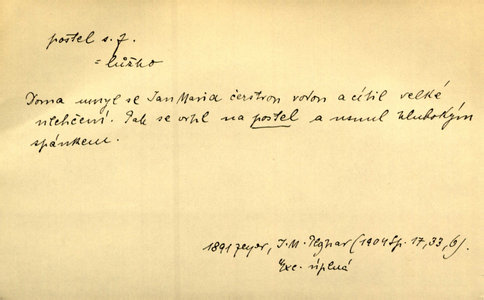 postel s. f.
= lůžko
Doma umyl se Jan Maria čerstvou vodou a cítil velké
ulehčení. Pak se vrhl na postel a usnul hlubokým
spánkem.
1891 Zeyer, J. M. Plojhar (1904 Sp. 17, 33, 6).
Exc. úplná